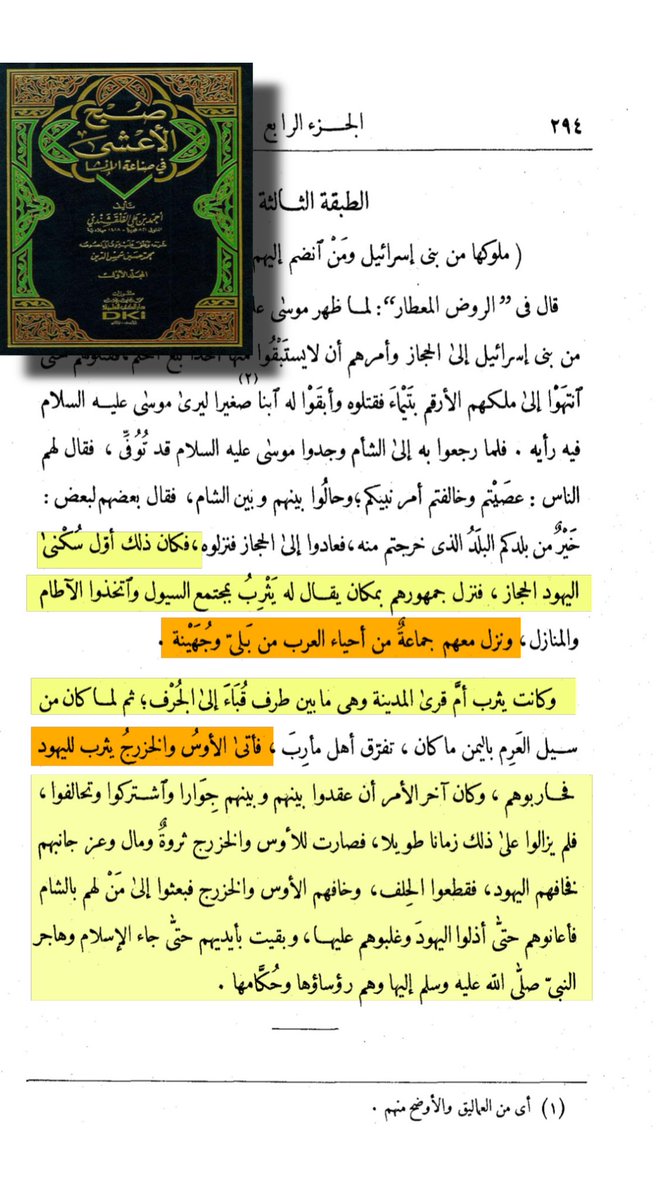 صُبح
الأعشى
في صناعة الإنشا
تأليف
أحمد بن علي القلقشندي
محمد حسين شمس الدين
DKI
الجزء الرابع
٢٩٤
الطبقة الثالثة
( ملوكها من بنى إسرائيل ومَنْ ٱنضم إليهم
قال فى ” الروض المعطار “: لما ظهر موسىٰ
من بنى إسرائيل إلىٰ الحجاز وأمرهم أن لايستَبْقُوا
ٱنتهَوْا إلىٰ ملكهم الأرقم بتَيْماءَ فقتلوه وأبقَوْا له ٱبنا صغيرا ليرىٰ موسىٰ عليه السلام
(٢)
فيه رأيه . فلما رجعوا به إلىٰ الشأم وجدوا موسىٰ عليه السلام قد تُوُفِّىَ ، فقال لهم
الناس : عصَيْتم وخالفتم أمر نبيكم ؛ وحالُوا بينهم وبين الشام، فقال بعضهم لبعض :
خَيْرٌ من بلدكم البلَدُ الذى خرجتم منه ،فعادوا إلىٰ الحجاز فنزلوه ،فكان ذلك أوّل سُكْنىٰ
اليهود الحجاز ، فنزل جمهورهم بمكان يقال له يَثْرِبُ بمجتمع السيول وٱتخذوا الآطام
والمنازل، ونزل معهم جماعةٌ من أحياء العرب من بَلىّ وجُهَيْنة .
وكانت يثرب أمَّ قرىٰ المدينة وهى مابين طرف قُبَاءَ إلىٰ الجُرْف؛ ثم لماكان من
سيل العَرِم باليمن ماكان ، تفرّق أهل مأرِبَ ، فأتىٰ الأوسُ والخزرجُ يثرب لليهود
فحاربوهم ، وكان آخر الأمر أن عقدوا بينهم وبينهم جِوَارا وٱشتركوا وتحالفوا ،
فلم يزالوا علىٰ ذلك زمانا طويلا، فصارت للأوس والخزرج ثروةٌ ومال وعز جانبهم
فخافهم اليهود، فقطعوا الحِلف، وخافهم الأوس والخزرج فبعثوا إلىٰ مَنْ لهم بالشام
فأعانوهم حتَّىٰ أذلوا اليهودَ وغلبوهم عليها، وبقيت بأيديهم حتَّىٰ جاء الإسلام وهاجر
النبىّ صلَّىٰ الله عليه وسلم إليها وهم رؤساؤها وحُكَّامها .
(١) أى من العماليق والأوضح منهم .